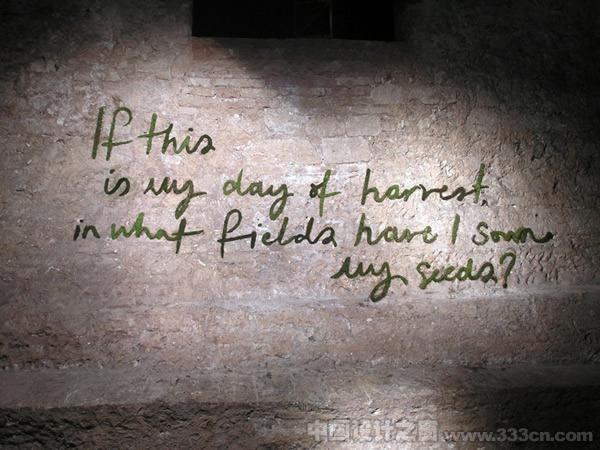 If this
is my day of harvest,
in what fields have I sown
my seeds?
中国设计之窗 www.333cn.com